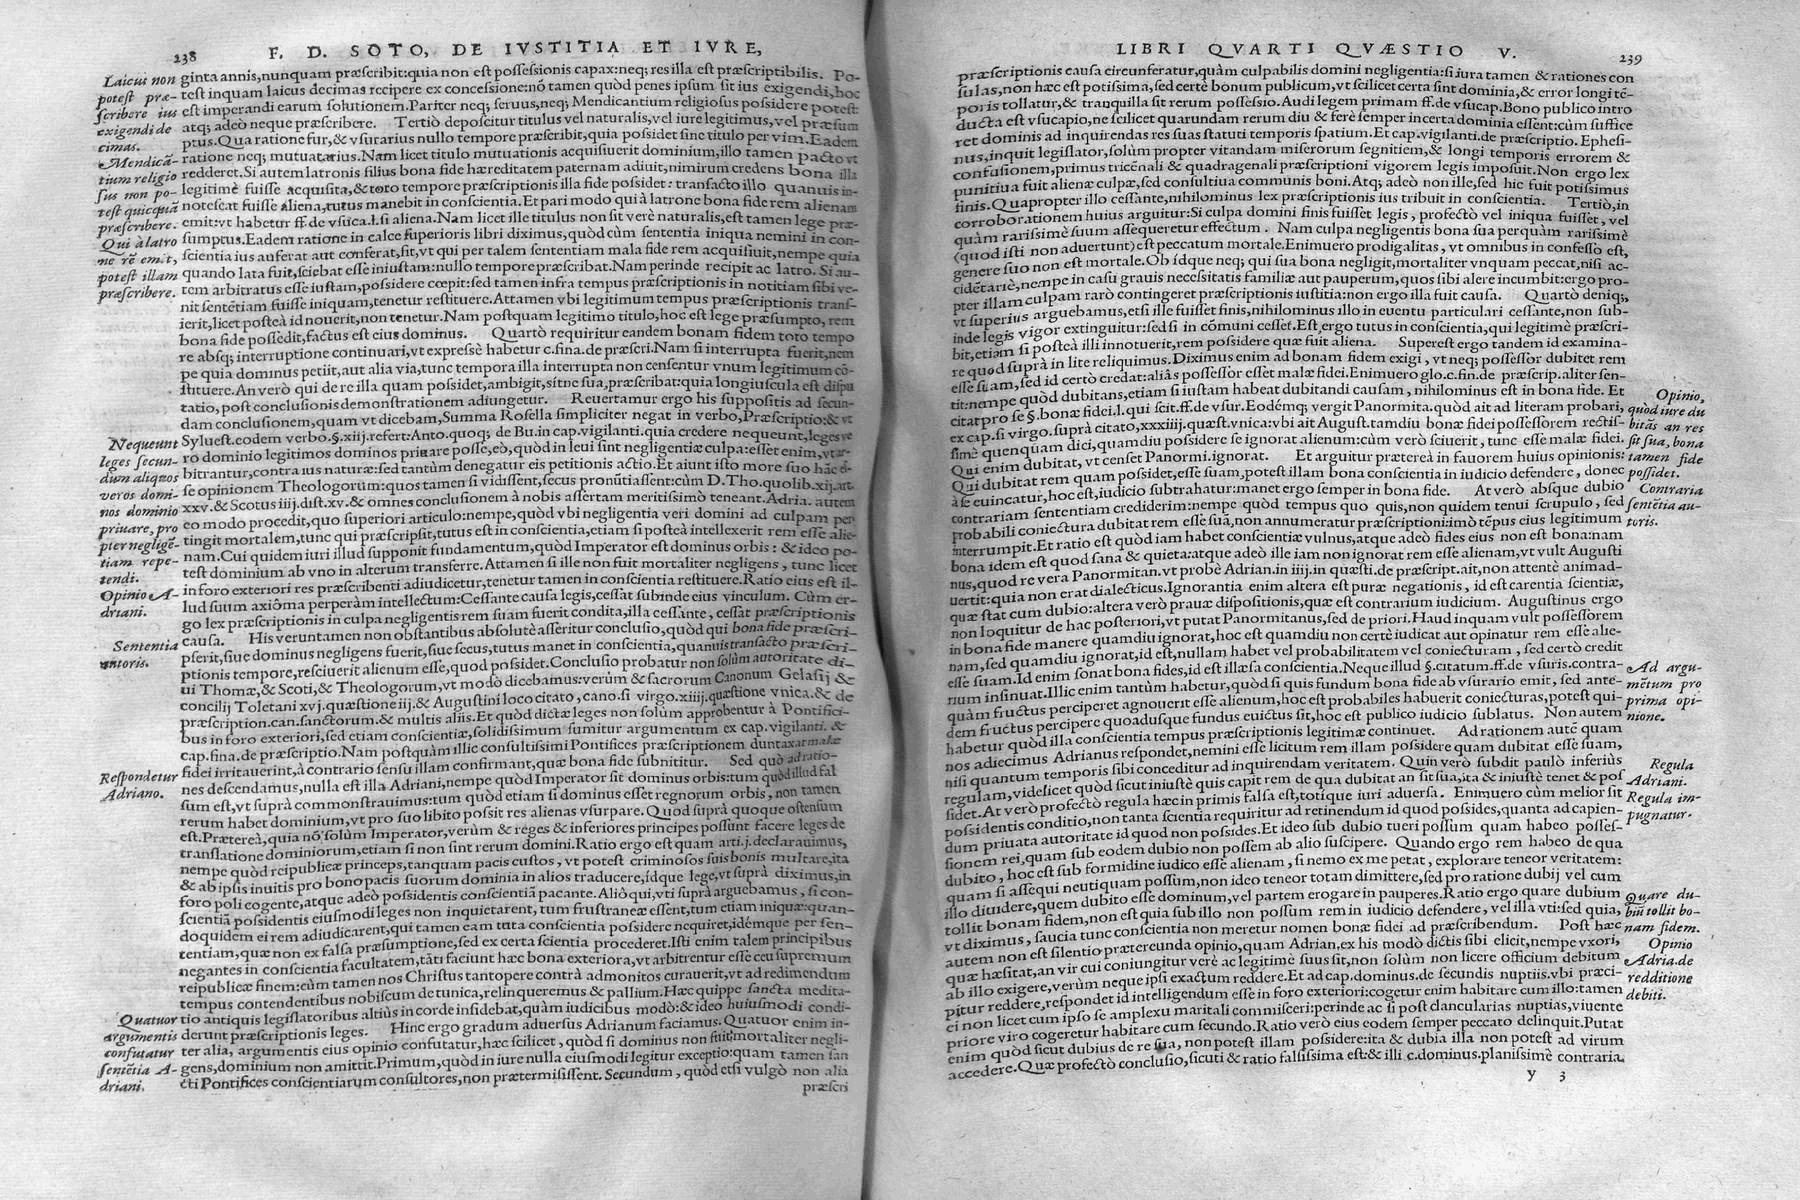 238 F. D. SOTO, DE IVSTITIA ET IVRE,
Laicui non
potest præ-
scribere ius
exigendi de
cimas.
Mendicā-
tium religio
sus non po-
test quicquā
præscribere.
Qui à latro
ne rē emit,
potest illam
præscribere.
Nequeunt
leges secun-
dum aliquos
veros domi-
nos dominio
priuare, pro
pter negligē-
tiam repe-
tendi.
Opinio A-
driani.
Sententia
autoris.
Respondetur
Adriano.
Quatuor
argumentis
confutatur
sentētia A-
driani.
ginta annis,nunquam præscribit:quia non est possessionis capax:neq; res illa est præscriptibilis. Po-
test inquam laicus decimas recipere ex concessione:nō tamen quòd penes ipsum sit ius exigendi,hoc
est imperandi earum solutionem.Pariter neq; seruus,neq; Mendicantium religiosus possidere potest:
atq; adeò neque præscribere. Tertiò deposcitur titulus vel naturalis,vel iure legitimus,vel præsum
ptus.Qua ratione fur,& vsurarius nullo tempore præscribit,quia possidet sine titulo per vim.Eadem
ratione neq; mutuatarius.Nam licet titulo mutuationis acquisuerit dominium,illo tamen pacto vt
redderet.Si autem latronis filius bona fide hæreditatem paternam adiuit,nimirum credens bona illa
legitimè fuisse acquisita,& toto tempore præscriptionis illa fide possidet: transacto illo quanuis in-
notescat fuisse aliena,tutus manebit in conscientia.Et pari modo qui à latrone bona fide rem alienam
emit:vt habetur ff.de vsuca.l.si aliena.Nam licet ille titulus non sit verè naturalis,est tamen lege præ-
sumptus.Eadem ratione in calce superioris libri diximus,quòd cùm sententia iniqua nemini in con-
scientia ius auferat aut conferat,fit,vt qui per talem sententiam mala fide rem acquisiuit,nempe quia
quando lata fuit,sciebat esse iniustam:nullo tempore præscribat.Nam perinde recipit ac latro. Si au-
tem arbitratus esse iustam,possidere cœpit:sed tamen infra tempus præscriptionis in notitiam sibi ve-
nit sentētiam fuisse iniquam,tenetur restituere.Attamen vbi legitimum tempus præscriptionis trans-
ierit,licet posteà id nouerit,non tenetur.Nam postquam legitimo titulo,hoc est lege præsumpto, rem
bona fide possedit,factus est eius dominus. Quartò requiritur eandem bonam fidem toto tempo
re absq; interruptione continuari,vt expressè habetur c.fina.de præscri.Nam si interrupta fuerit,nem
pe quia dominus petiit,aut alia via,tunc tempora illa interrupta non censentur vnum legitimum cō-
stituere.An verò qui de re illa quam possidet,ambigit,sitne sua,præscribat:quia longiuscula est dispu
tatio,post conclusionis demonstrationem adiungetur. Reuertamur ergo his suppositis ad secun-
dam conclusionem,quam vt dicebam,Summa Rosella simpliciter negat in verbo,Præscriptio:& vt
Syluest.eodem verbo.§.xiij.refert:Anto.quoq; de Bu.in cap.vigilanti.quia credere nequeunt,leges ve
ro dominio legitimos dominos priuare posse,eò,quòd in leui sint negligentiæ culpa:esset enim,vt ar-
bitrantur,contra ius naturæ:sed tantùm denegatur eis petitionis actio.Et aiunt isto more suo hāc es-
se opinionem Theologorum:quos tamen si vidissent,secus pronūtiassent:cùm D.Tho.quolib.xij.art.
xxv.& Scotus iiij.dist.xv.& omnes conclusionem à nobis assertam meritissimò teneant.Adria. autem
eo modo procedit,quo superiori articulo:nempe,quòd vbi negligentia veri domini ad culpam per
tingit mortalem,tunc qui præscripsit,tutus est in conscientia,etiam si posteà intellexerit rem esse alie-
nam.Cui quidem iuri illud supponit fundamentum,quòd Imperator est dominus orbis : & ideo po-
test dominium ab vno in alterum transferre.Attamen si ille non fuit mortaliter negligens , tunc licet
in foro exteriori res præscribenti adiudicetur,tenetur tamen in conscientia restituere.Ratio eius est il-
lud suum axiōma perperàm intellectum:Cessante causa legis,cessat subinde eius vinculum. Cùm er-
go lex præscriptionis in culpa negligentis rem suam fuerit condita,illa cessante , cessat præscriptionis
causa. His veruntamen non obstantibus absolutè asseritur conclusio,quòd qui bona fide præscri-
pserit,siue dominus negligens fuerit,siue secus,tutus manet in conscientia,quanuis transacto præscri-
ptionis tempore,resciuerit alienum esse,quod possidet.Conclusio probatur non solùm autoritate di-
ui Thomæ,& Scoti,& Theologorum,vt modò dicebamus:verùm & sacrorum Canonum Gelasij &
concilij Toletani xvj.quæstione iij.& Augustini loco citato, cano.si virgo.xiiij.quæstione vnica.& de
præscription.can.sanctorum.& multis aliis.Et quòd dictæ leges non solùm approbentur à Pontifici-
bus in foro exteriori,sed etiam conscientiæ,solidissimum sumitur argumentum ex cap.vigilanti. &
cap.fina.de præscriptio.Nam postquàm illic consultissimi Pontifices præscriptionem duntaxat malæ
fidei irritauerint,à contrario sensu illam confirmant,quæ bona fide subnititur. Sed quò ad ratio-
nes descendamus,nulla est illa Adriani,nempe quòd Imperator sit dominus orbis:tum quòd illud fal
sum est,vt suprà commonstrauimus:tum quòd etiam si dominus esset regnorum orbis , non tamen
rerum habet dominium,vt pro suo libito possit res alienas vsurpare. Quod suprà quoque ostensum
est.Prætereà,quia nō solùm Imperator,verùm & reges & inferiores principes possunt facere leges de
translatione dominiorum,etiam si non sint rerum domini.Ratio ergo est quam arti.j.declarauimus,
nempe quòd reipublicæ princeps,tanquam pacis custos, vt potest criminosos suis bonis multare,ita
& ab ipsis inuitis pro bono pacis suorum dominia in alios traducere,idque lege,vt suprà diximus,in
foro poli cogente,atque adeò possidentis conscientiā pacante.Aliôqui,vti suprà arguebamus , si con-
scientiā possidentis eiusmodi leges non inquietarent, tum frustraneæ essent,tum etiam iniquæ:quan-
doquidem ei rem adiudicarent,qui tamen eam tuta conscientia possidere nequiret,idémque per sen-
tentiam,quæ non ex falsa præsumptione,sed ex certa scientia procederet.Isti enim talem principibus
negantes in conscientia facultatem,tāti faciunt hæc bona exteriora,vt arbitrentur esse ceu supremum
reipublicæ finem:cùm tamen nos Christus tantopere contrà admonitos curauerit,vt ad redimendum
tempus contendentibus nobiscum de tunica,relinqueremus & pallium.Hæc quippe sancta medita-
tio antiquis legislatoribus altiùs in corde insidebat,quàm iudicibus modò:& ideo huiusmodi condi-
derunt præscriptionis leges. Hinc ergo gradum aduersus Adrianum faciamus.Quatuor enim in-
ter alia, argumentis eius opinio confutatur,hæc scilicet , quòd si dominus non fuit mortaliter negli-
gens,dominium non amittit.Primum,quòd in iure nulla eiusmodi legitur exceptio:quam tamen san
cti Pontifices conscientiarum consultores,non prætermisissent. Secundum , quòd etsi vulgò non alia
præscri
LIBRI QVARTI QVÆSTIO V. 239
præscriptionis causa circunferatur,quàm culpabilis domini negligentia:si iura tamen & rationes con
sulas,non hæc est potissima,sed certè bonum publicum,vt scilicet certa sint dominia,& error longi tē-
poris tollatur,& tranquilla sit rerum possessio.Audi legem primam ff.de vsucap.Bono publico intro
ducta est vsucapio,ne scilicet quarundam rerum diu & ferè semper incerta dominia essent:cùm suffice
ret dominis ad inquirendas res suas statuti temporis spatium.Et cap.vigilanti.de præscriptio.Ephesi-
nus,inquit legislator,solùm propter vitandam miserorum segnitiem,& longi temporis errorem &
confusionem,primus tricēnali & quadragenali præscriptioni vigorem legis imposuit.Non ergo lex
punitiua fuit alienæ culpæ,sed consultiua communis boni.Atq; adeò non ille,sed hic fuit potissimus
finis.Quapropter illo cessante,nihilominus lex præscriptionis ius tribuit in conscientia. Tertiò,in
corroborationem huius arguitur:Si culpa domini finis fuisset legis , profectò vel iniqua fuisset, vel
quàm rarissimè suum assequeretur effectum . Nam culpa negligentis bona sua perquàm rarissimè
(quod isti non aduertunt) est peccatum mortale.Enimuero prodigalitas, vt omnibus in confesso est,
genere suo non est mortale.Ob idque neq; qui sua bona negligit,mortaliter vnquam peccat,nisi ac-
cidētariè,nempe in casu grauis necessitatis familiæ aut pauperum,quos sibi alere incumbit:ergo pro-
pter illam culpam rarò contingeret præscriptionis iustitia:non ergo illa fuit causa. Quartò deniq;,
vt superius arguebamus,etsi ille fuisset finis,nihilominus illo in euentu particulari cessante, non sub-
inde legis vigor extinguitur:sed si in cōmuni cesset.Est ergo tutus in conscientia,qui legitimè præscri-
bit,etiam si posteà illi innotuerit,rem possidere quæ fuit aliena. Superest ergo tandem id examina-
re quod suprà in lite reliquimus.Diximus enim ad bonam fidem exigi , vt neq; possessor dubitet rem
esse suam,sed id certò credat:aliâs possessor esset malæ fidei.Enimuero glo.c.fin.de præscrip.aliter sen-
tit:nempe quòd dubitans,etiam si iustam habeat dubitandi causam , nihilominus est in bona fide. Et
citat pro se §.bonæ fidei.l.qui scit.ff.de vsur.Eodémq; vergit Panormita.quòd ait ad literam probari,
ex cap.si virgo.suprà citato,xxxiiij.quæst.vnica:vbi ait August.tamdiu bonæ fidei possessorem rectis-
simè quenquam dici,quamdiu possidere se ignorat alienum:cùm verò sciuerit , tunc esse malæ fidei.
Qui enim dubitat, vt censet Panormi.ignorat. Et arguitur prætereà in fauorem huius opinionis:
Qui dubitat rem quam possidet,esse suam,potest illam bona conscientia in iudicio defendere , donec
à se euincatur,hoc est,iudicio subtrahatur:manet ergo semper in bona fide. At verò absque dubio
contrariam sententiam crediderim:nempe quòd tempus quo quis,non quidem tenui scrupulo , sed
probabili coniectura dubitat rem esse suā,non annumeratur præscriptioni:imò tēpus eius legitimum
interrumpit.Et ratio est quòd iam habet conscientiæ vulnus,atque adeò fides eius non est bona:nam
bona idem est quod sana & quieta:atque adeò ille iam non ignorat rem esse alienam,vt vult Augusti
nus,quod re vera Panormitan.vt probè Adrian.in iiij.in quæsti.de præscript.ait,non attentè animad-
uertit:quia non erat dialecticus.Ignorantia enim altera est puræ negationis , id est carentia scientiæ,
quæ stat cum dubio:altera verò prauæ dispositionis,quæ est contrarium iudicium . Augustinus ergo
non loquitur de hac posteriori,vt putat Panormitanus,sed de priori.Haud inquam vult possessorem
in bona fide manere quamdiu ignorat,hoc est quamdiu non certè iudicat aut opinatur rem esse alie-
nam,sed quamdiu ignorat,id est,nullam habet vel probabilitatem vel coniecturam , sed certò credit
esse suam.Id enim sonat bona fides,id est illæsa conscientia.Neque illud §.citatum.ff.de vsuris.contra-
rium insinuat.Illic enim tantùm habetur,quòd si quis fundum bona fide ab vsurario emit, sed ante-
quàm fructus perciperet agnouerit esse alienum,hoc est probabiles habuerit coniecturas,potest qui-
dem fructus percipere quoadusque fundus euictus sit,hoc est publico iudicio sublatus. Non autem
habetur quòd illa conscientia tempus præscriptionis legitimæ continuet. Ad rationem autē quam
nos adiecimus Adrianus respondet,nemini esse licitum rem illam possidere quam dubitat esse suam,
nisi quantum temporis sibi conceditur ad inquirendam veritatem. Quin verò subdit paulò inferiùs
regulam,videlicet quòd sicut iniustè quis capit rem de qua dubitat an sit sua,ita & iniustè tenet & pos
sidet.At verò profectò regula hæc in primis falsa est,totique iuri aduersa . Enimuero cùm melior sit
possidentis conditio,non tanta scientia requiritur ad retinendum id quod possides,quanta ad capien-
dum priuata autoritate id quod non possides.Et ideo sub dubio tueri possum quam habeo posses-
sionem rei,quam sub eodem dubio non possem ab alio suscipere. Quando ergo rem habeo de qua
dubito , hoc est sub formidine iudico esse alienam , si nemo ex me petat , explorare teneor veritatem:
quam si assequi neutiquam possum,non ideo teneor totam dimittere,sed pro ratione dubij vel cum
illo diuidere,quem dubito esse dominum,vel partem erogare in pauperes.Ratio ergo quare dubium
tollit bonam fidem,non est quia sub illo non possum rem in iudicio defendere , vel illa vti:sed quia,
vt diximus , saucia tunc conscientia non meretur nomen bonæ fidei ad præscribendum. Post hæc
autem non est silentio prætereunda opinio,quam Adrian.ex his modò dictis sibi elicit,nempe vxori,
quæ hæsitat,an vir cui coniungitur verè ac legitimè suus sit,non solùm non licere officium debitum
ab illo exigere,verùm neque ipsi exactum reddere.Et ad cap.dominus.de secundis nuptiis.vbi præci-
pitur reddere,respondet id intelligendum esse in foro exteriori:cogetur enim habitare cum illo:tamen
ei non licet cum ipso se amplexu maritali commisceri:perinde ac si post clancularias nuptias,viuente
priore viro cogeretur habitare cum secundo.Ratio verò eius eodem semper peccato delinquit.Putat
enim quòd sicut dubius de re sua, non potest illam possidere:ita & dubia illa non potest ad virum
accedere.Quæ profectò conclusio,sicuti & ratio falsissima est:& illi c.dominus.planissimè contraria.
Opinio,
quòd iure du
bitās an res
sit sua, bona
tamen fide
possidet.
Contraria
sentētia au-
toris.
Ad argu-
mētum pro
prima opi-
nione.
Regula
Adriani.
Regula im-
pugnatur.
Quare du-
biū tollit bo-
nam fidem.
Opinio
Adria.de
redditione
debiti.
y 3